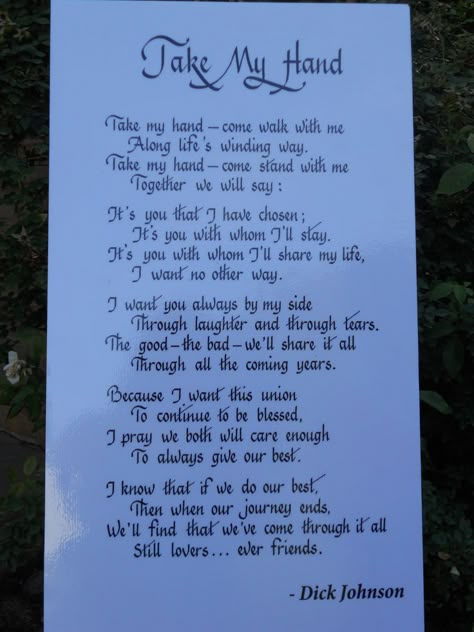 Take My Hand
Take my hand – come walk with me
Along life's winding way.
Take my hand – come stand with me
Together we will say:
It's you that I have chosen;
It's you with whom I'll stay.
It's you with whom I'll share my life,
I want no other way.
I want you always by my side
Through laughter and through tears.
The good – the bad – we'll share it all
Through all the coming years.
Because I want this union
To continue to be blessed,
I pray we both will care enough
To always give our best.
I know that if we do our best,
Then when our journey ends,
We'll find that we've come through it all
Still lovers... ever friends.
- Dick Johnson